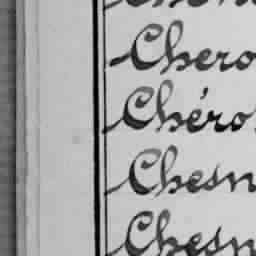 Chero
Chéro
Chesn
Chesn